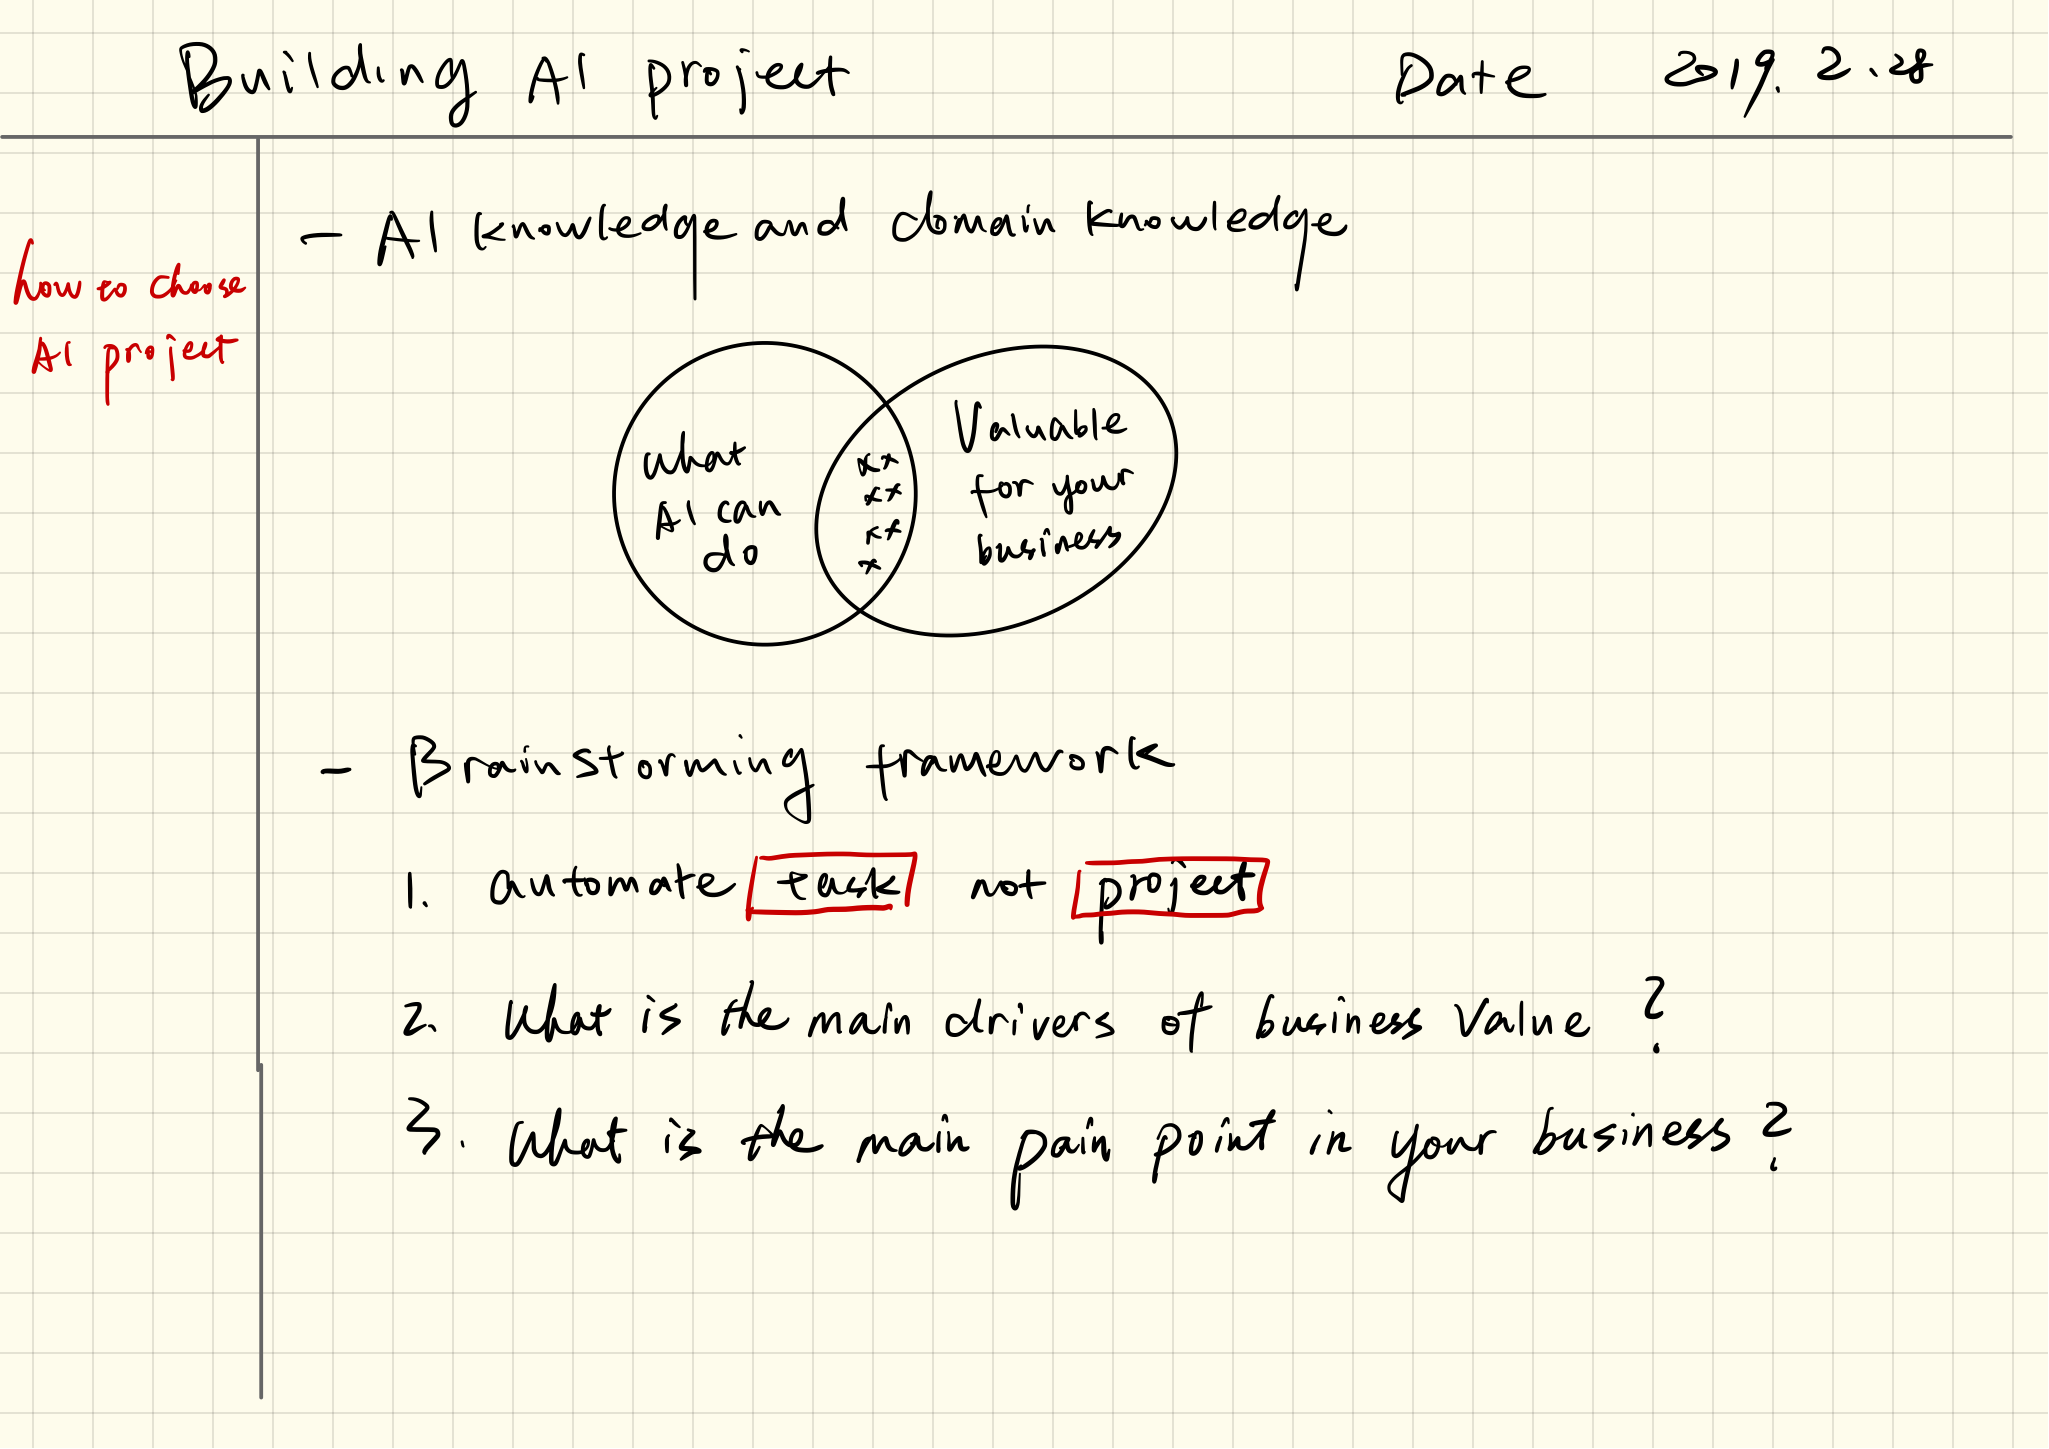 Building AI project
Date 2019.2.28
how to choose
AI project
- AI knowledge and domain knowledge
what
AI can
do
xx
xx
xx
x
Valuable
for your
business
- Brainstorming framework
1. automate task not project
2. What is the main drivers of business value ?
3. What is the main pain point in your business ?